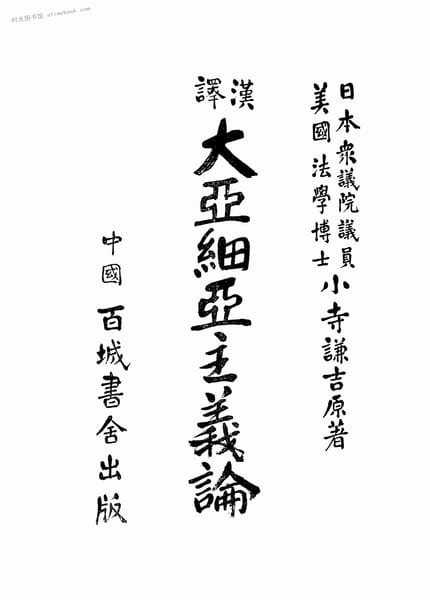 时光图书馆 · atimebook.com
日本衆議院議員
美國法學博士
小寺謙吉原著
漢譯
大亞細亞主義論
中國百城書舍出版